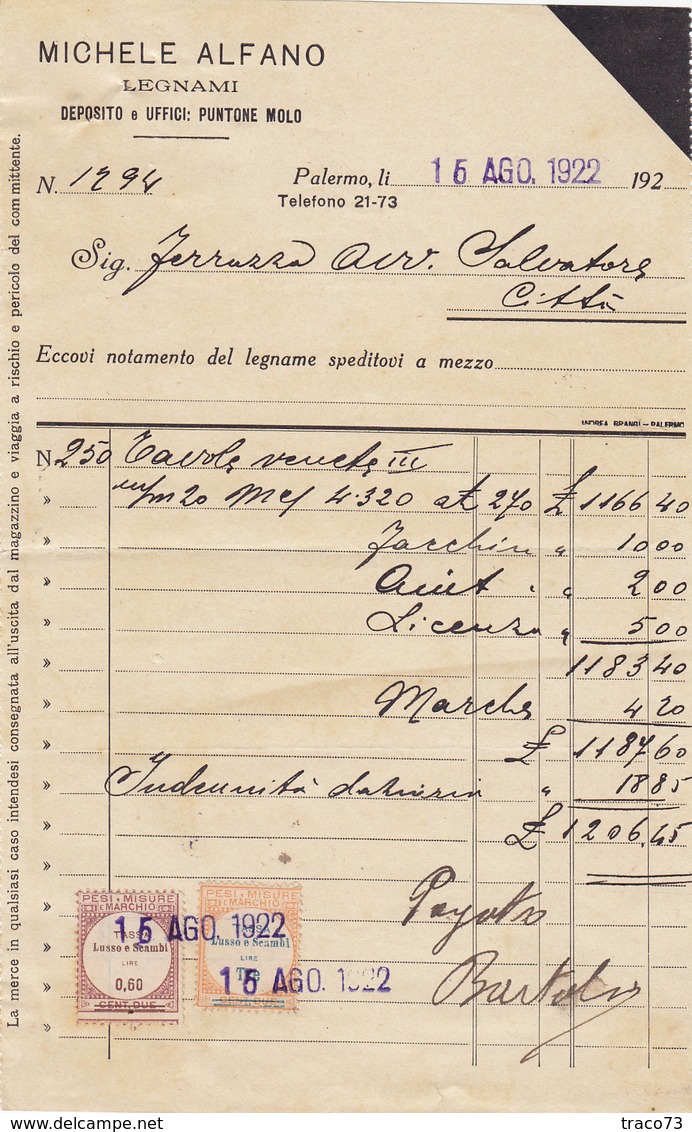 MICHELE ALFANO
LEGNAMI
DEPOSITO e UFFICI: PUNTONE MOLO
N. 1294 Palermo, li 15 AGO. 1922 192
Telefono 21-73
Sig. Ferruzza Avv. Salvatore
Città
Eccovi notamento del legname speditovi a mezzo
ANDREA BRANGÌ - PALERMO
N 250 Tavole venete III
» m/m 20 Mc/ 4.320 a £ 270 £ 1166 40
» Facchin " 10 00
» " 2 00
» Licenza " 5 00
» 1183 40
» Marche 4 20
» £ 1187 60
» Indennità daziaria " 18 85
» £ 1206,45
»
»
»
»
»
Pagato
PESI E MISURE
E MARCHIO
TASSA
Lusso e Scambi
LIRE
0,60
CENT. DUE
15 AGO. 1922
PESI E MISURE
E MARCHIO
TASSA
Lusso e Scambi
LIRE
Tre
CENT. DUE
15 AGO. 1922
La merce in qualsiasi caso intendesi consegnata all'uscita dal magazzino e viaggia a rischio e pericolo del committente.
www.delcampe.net
traco73